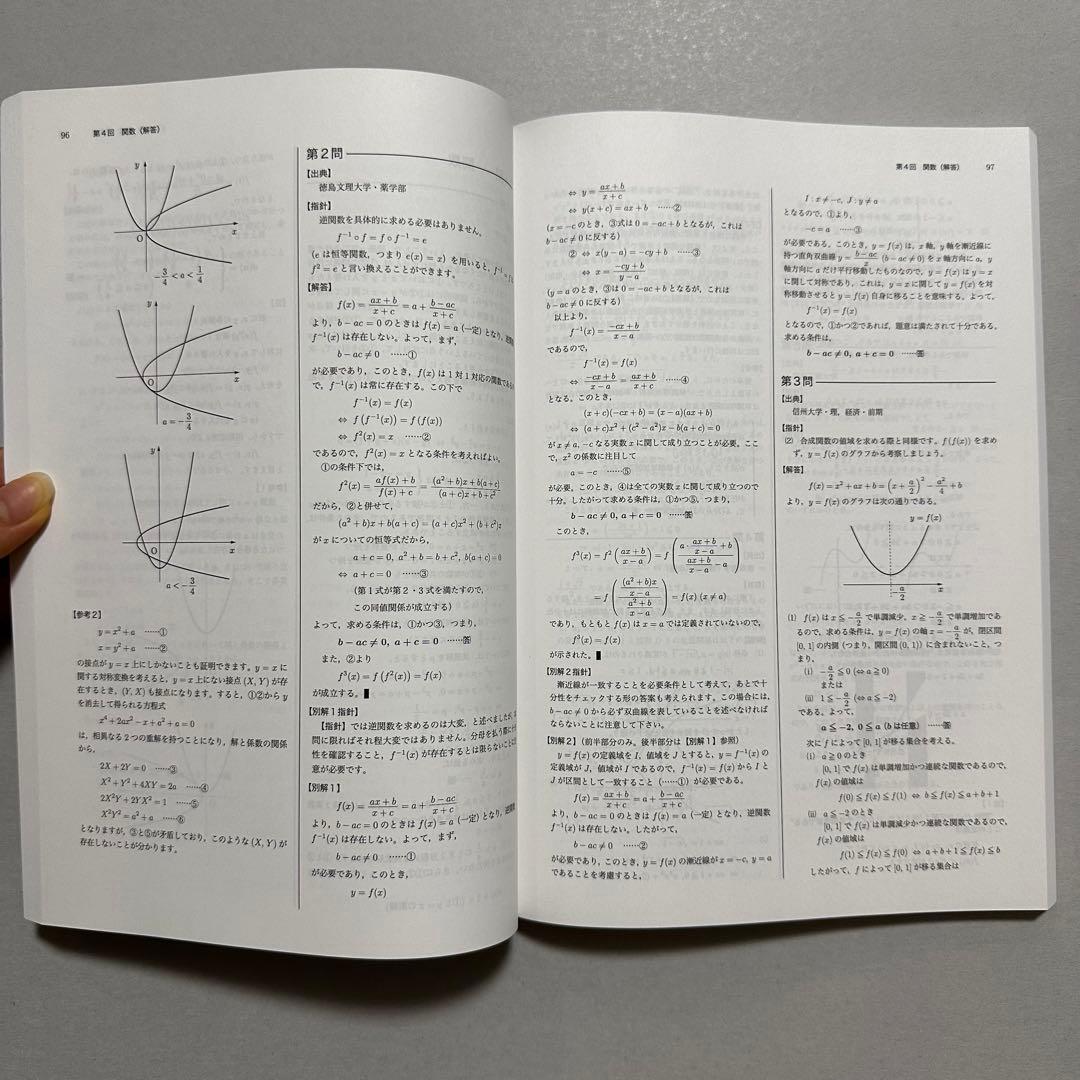 96 第4回 関数（解答）
y
O
x
-3/4 < a < 1/4
y
O
x
a = -3/4
y
O
x
a < -3/4
【参考2】
y = x² + a ……①
x = y² + a ……②
の接点が y = x 上にしかないことも証明できます。y = x に
関する対称変換を考えると，y = x 上にない接点 (X, Y) が存
在するとき，(Y, X) も接点になります。すると，①②から y
を消去して得られる方程式
x⁴ + 2ax² - x + a² + a = 0
は，相異なる2つの重解を持つことになり，解と係数の関係
から，
2X + 2Y = 0 ……③
X² + Y² + 4XY = 2a ……④
2X²Y + 2YX² = 1 ……⑤
X²Y² = a² + a ……⑥
となりますが，③と⑤が矛盾しており，このような (X, Y) が
存在しないことが分かります。
第2問
【出典】
徳島文理大学・薬学部
【指針】
逆関数を具体的に求める必要はありません。
f⁻¹ ∘ f = f ∘ f⁻¹ = e
(e は恒等関数，つまり e(x) = x) を用いると，f⁻¹ = f も
f² = e と言い換えることができます。
【解答】
f(x) = (ax+b)/(x+c) = a + (b-ac)/(x+c)
より，b - ac = 0 のときは f(x) = a (一定) となり，逆関
f⁻¹(x) は存在しない。よって，まず，
b - ac ≠ 0 ……①
が必要であり，このとき，f(x) は1対1対応の関数である
で，f⁻¹(x) は常に存在する。この下で
f⁻¹(x) = f(x)
⇔ f(f⁻¹(x)) = f(f(x))
⇔ f²(x) = x ……②
であるので，f²(x) = x となる条件を考えればよい。
①の条件下では，
f²(x) = (af(x)+b)/(f(x)+c) = ((a²+b)x+b(a+c))/((a+c)x+b+c²)
だから，②と併せて，
(a²+b)x + b(a+c) = (a+c)x² + (b+c²)x
が x についての恒等式だから，
a + c = 0, a² + b = b + c², b(a+c) = 0
⇔ a + c = 0 ……③
(第1式が第2・3式を満たすので，
この同値関係が成立する)
よって，求める条件は，①かつ③，つまり，
b - ac ≠ 0, a + c = 0 ……答
また，②より
f³(x) = f(f²(x)) = f(x)
が成立する。
【別解1指針】
【指針】では逆関数を求めるのは大変，と述べましたが，
問に限ればそれ程大変ではありません。分母を払う際に
性を確認すること，f⁻¹(x) が存在するとは限らないことに
意が必要です。
【別解1】
f(x) = (ax+b)/(x+c) = a + (b-ac)/(x+c)
より，b - ac = 0 のときは f(x) = a (一定) となり，逆関数
f⁻¹(x) は存在しない。よって，まず，
b - ac ≠ 0 ……①
が必要であり，このとき，
y = f(x)
第4回 関数（解答） 97
⇔ y = (ax+b)/(x+c)
⇔ y(x+c) = ax + b ……②
(x = -c のとき，③式は 0 = -ac + b となるが，これは
b - ac ≠ 0 に反する)
② ⇔ x(y-a) = -cy + b ……③
⇔ x = (-cy+b)/(y-a)
(y = a のとき，③は 0 = -ac + b となるが，これは
b - ac ≠ 0 に反する)
以上より，
f⁻¹(x) = (-cx+b)/(x-a)
であるので，
f⁻¹(x) = f(x)
⇔ (-cx+b)/(x-a) = (ax+b)/(x+c) ……④
となる。このとき，
(x+c)(-cx+b) = (x-a)(ax+b)
⇔ (a+c)x² + (c²-a²)x - b(a+c) = 0
が x ≠ a, -c なる実数 x に関して成り立つことが必要。ここ
で，x² の係数に注目して
a = -c ……⑤
が必要。このとき，④は全ての実数 x に関して成り立つので
十分。したがって求める条件は，①かつ⑤，つまり，
b - ac ≠ 0, a + c = 0 ……答
このとき，
f³(x) = f²((ax+b)/(x-a)) = f((a·(ax+b)/(x-a)+b)/((ax+b)/(x-a)-a))
= f(((a²+b)x/(x-a))/((a²+b)/(x-a))) = f(x) (x ≠ a)
であり，もともと f(x) は x = a では定義されていないので，
f³(x) = f(x)
が示された。
【別解2指針】
漸近線が一致することを必要条件として考えて，あとで十
分性をチェックする形の答案も考えられます。この場合には，
b - ac ≠ 0 から必ず双曲線を表していることを述べなければ
ならないことに注意して下さい。
【別解2】（前半部分のみ。後半部分は【別解1】参照）
y = f(x) の定義域を I，値域を J とすると，y = f⁻¹(x) の
定義域が J，値域が I であるので，f⁻¹(x) = f(x) から I と
J が区間として一致すること（……①）が必要である。
f(x) = (ax+b)/(x+c) = a + (b-ac)/(x+c)
より，b - ac = 0 のときは f(x) = a (一定) となり，逆関数
f⁻¹(x) は存在しない。したがって，
b - ac ≠ 0 ……②
が必要であり，このとき，y = f(x) の漸近線が x = -c, y = a
であることを考慮すると，
I : x ≠ -c, J : y ≠ a
となるので，①より，
-c = a ……③
が必要である。このとき，y = f(x) は，x 軸，y 軸を漸近線に
持つ直角双曲線 y = (b-ac)/x (b - ac ≠ 0) を x 軸方向に a，y
軸方向に a だけ平行移動したものなので，y = f(x) は y = x
に関して対称であり，これは，y = x に関して y = f(x) を対
称移動させると y = f(x) 自身に移ることを意味する。よって，
f⁻¹(x) = f(x)
となるので，①かつ②であれば，題意は満たされて十分である。
求める条件は，
b - ac ≠ 0, a + c = 0 ……答
第3問
【出典】
信州大学・理，経済・前期
【指針】
(2) 合成関数の値域を求める際と同様です。f(f(x)) を求め
ず，y = f(x) のグラフから考察しましょう。
【解答】
f(x) = x² + ax + b = (x + a/2)² - a²/4 + b
より，y = f(x) のグラフは次の通りである。
y = f(x)
-a/2
x
(1) f(x) は x ≦ -a/2 で単調減少，x ≧ -a/2 で単調増加であ
るので，求める条件は，y = f(x) の軸 x = -a/2 が，閉区間
[0, 1] の内側 (つまり，開区間 (0, 1)) に含まれないこと，つ
まり，
(i) -a/2 ≦ 0 (⇔ a ≧ 0)
または
(ii) 1 ≦ -a/2 (⇔ a ≦ -2)
である。よって，
a ≦ -2, 0 ≦ a (b は任意) ……答
次に f によって [0, 1] が移る集合を考える。
(i) a ≧ 0 のとき
[0, 1] で f(x) は単調増加かつ連続な関数であるので，
f(x) の値域は
f(0) ≦ f(x) ≦ f(1) ⇔ b ≦ f(x) ≦ a + b + 1
(ii) a ≦ -2 のとき
[0, 1] で f(x) は単調減少かつ連続な関数であるので，
f(x) の値域は
f(1) ≦ f(x) ≦ f(0) ⇔ a + b + 1 ≦ f(x) ≦ b
したがって，f によって [0, 1] が移る集合は